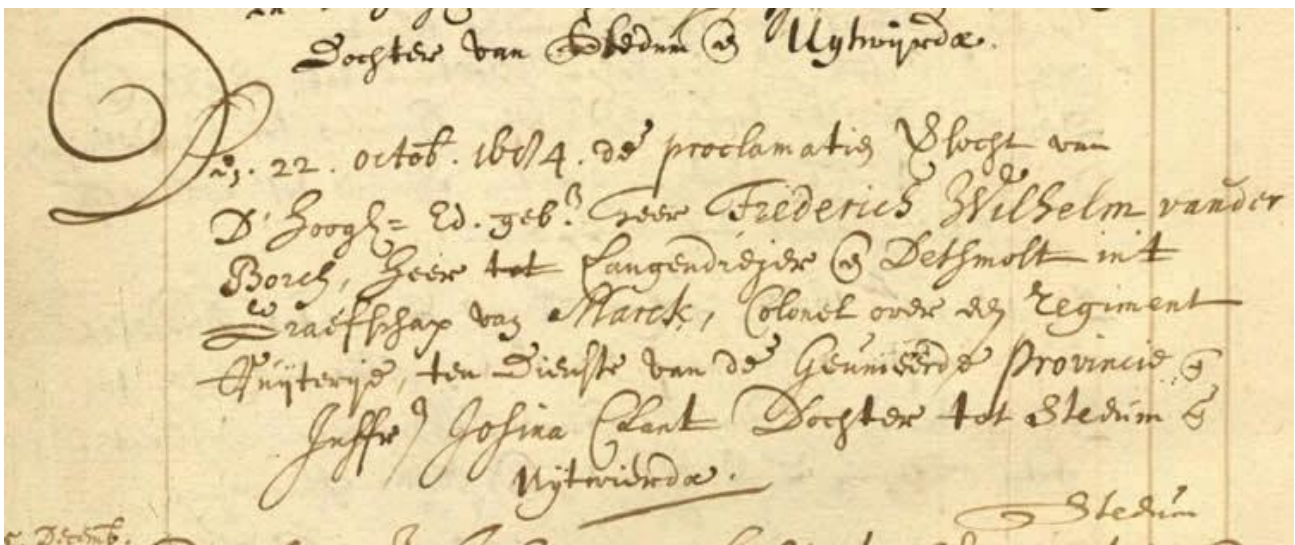 Dochter van Stedum en Uytwijrdæ.
Den. 22. octob. 1684. de proclamatien v
D' Hoogh= Ed. geb. Heer Friederich Wilhelm vander
Borch, Heer tot Langendrejer en Dethmolt int
Graefschap van Marck, Colonel over een Regiment
Ruijterije, ten Dienste van de Geunieerde Provincie en
Juffr Josina Clant Dochter tot Stedum en
Uytwierdæ.
Stedum
Decemb.